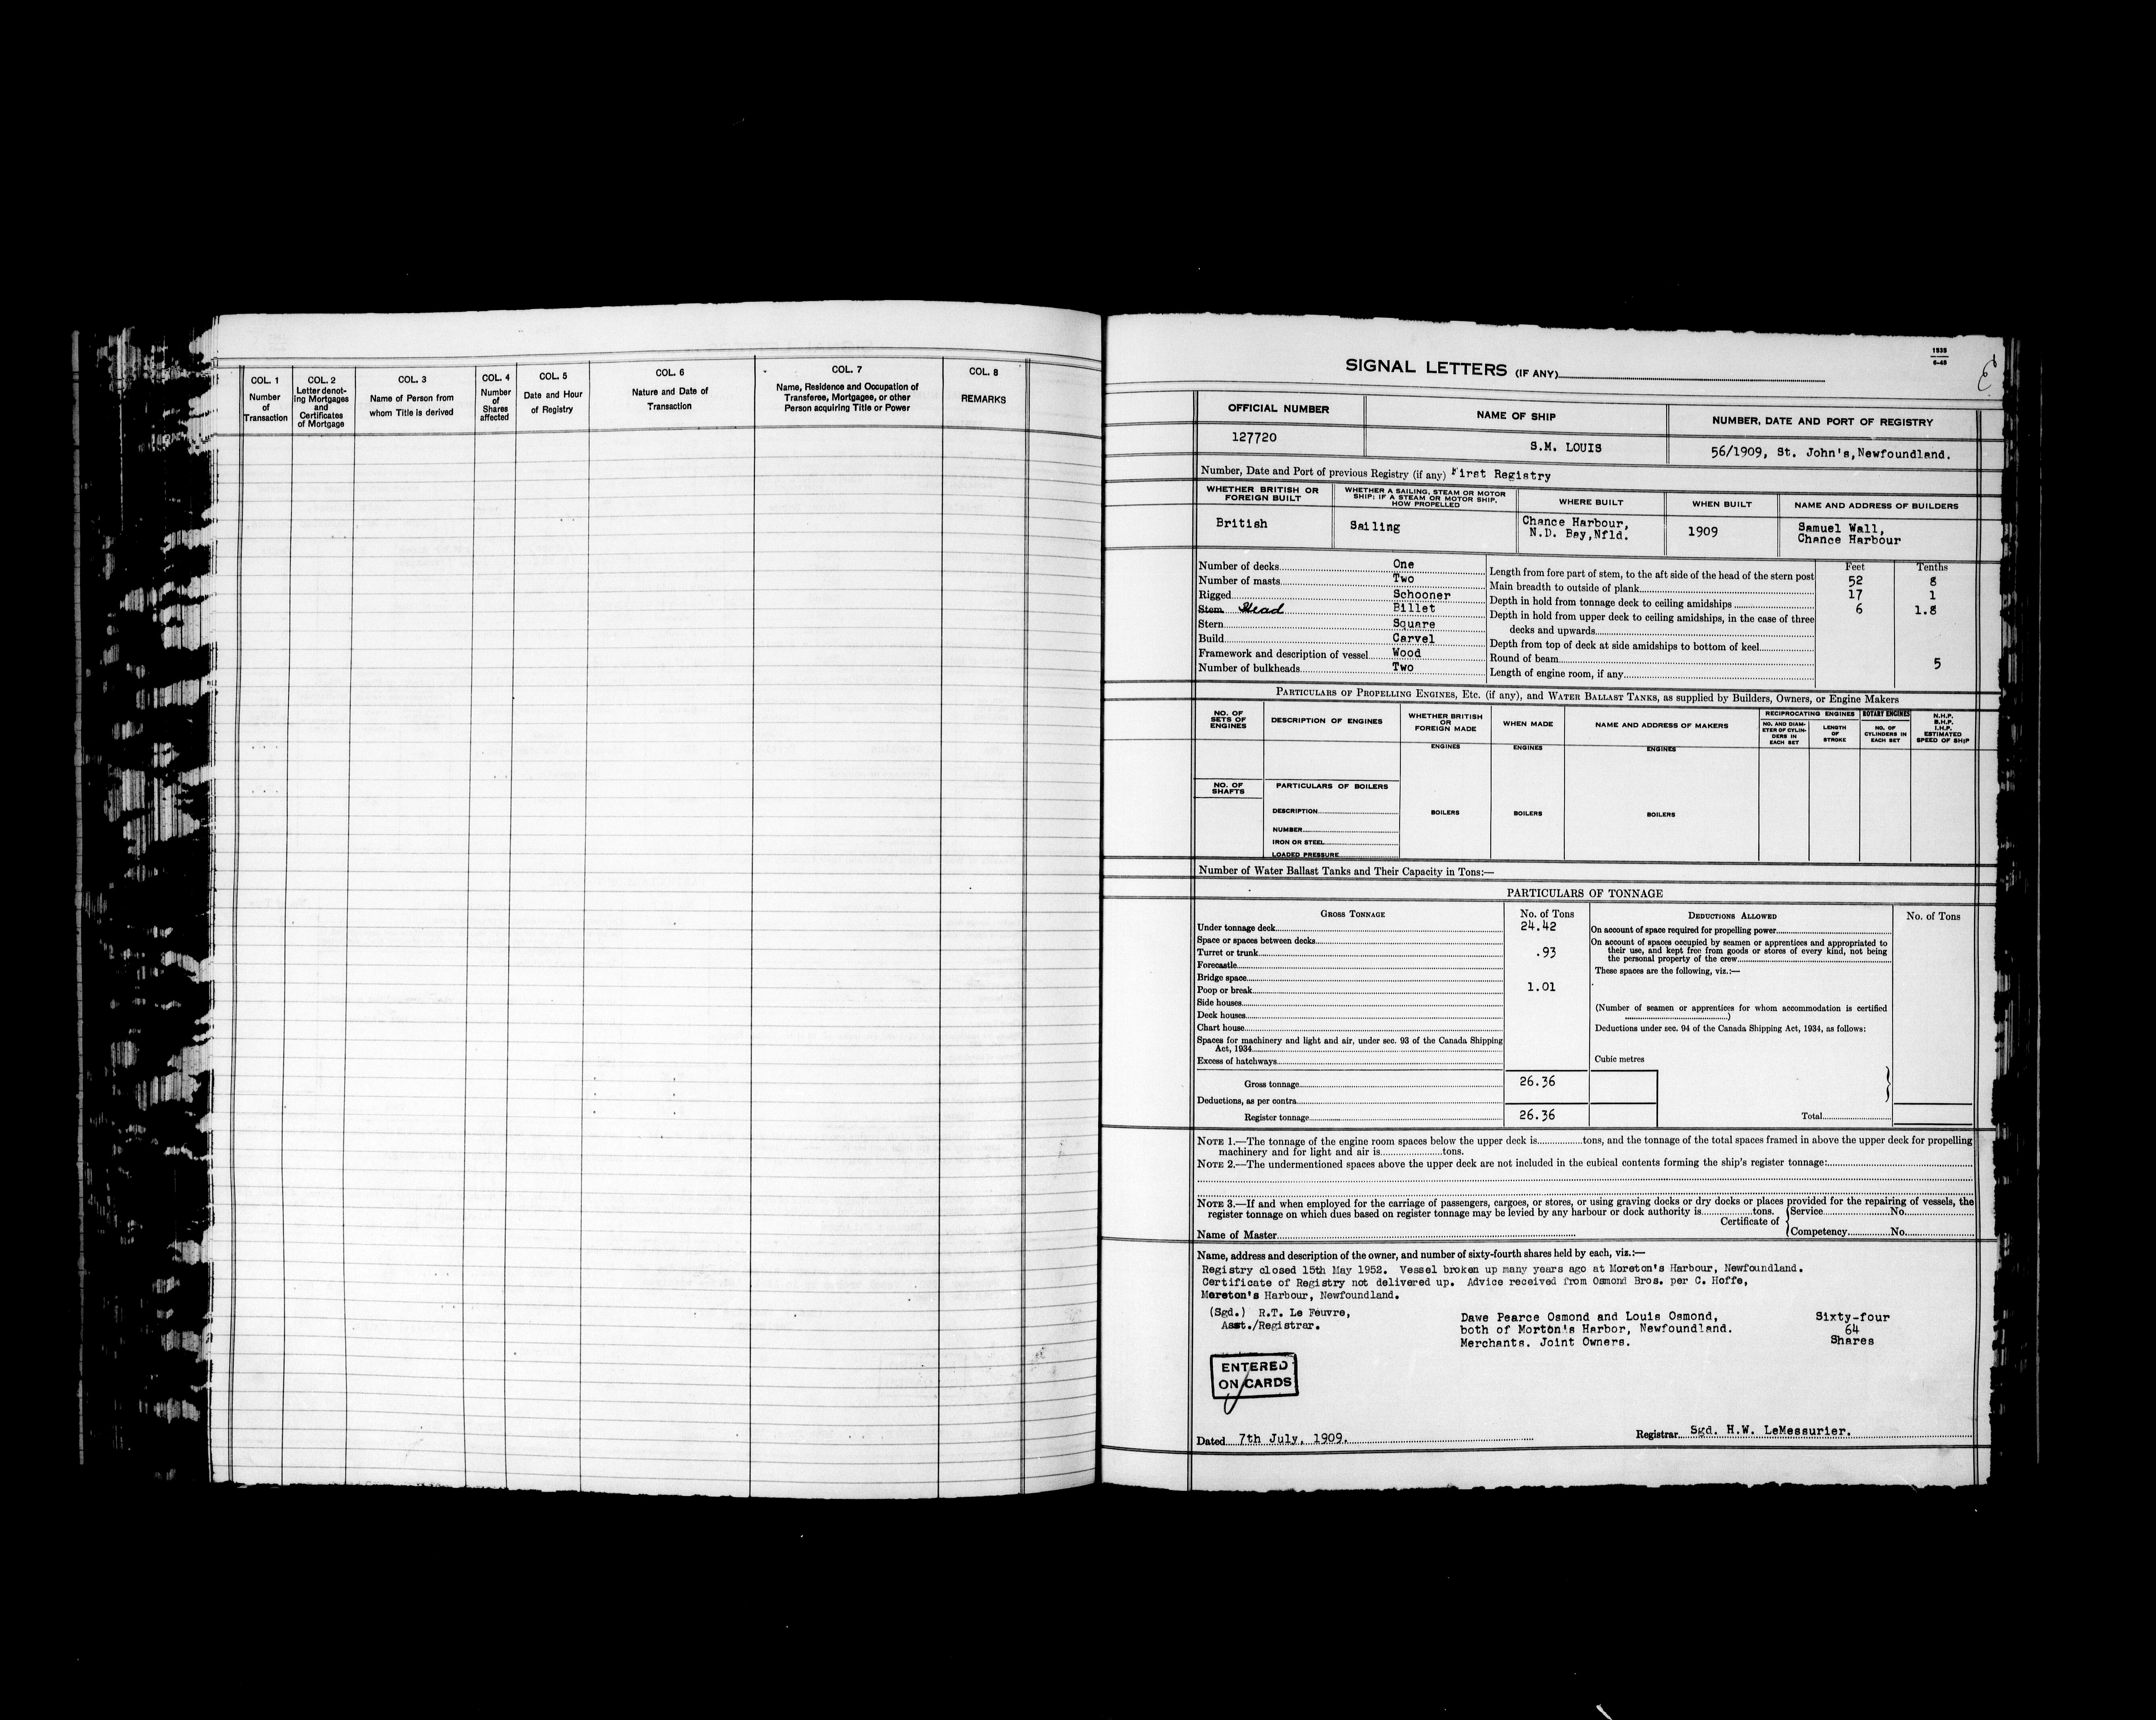 COL. 1
Number
of
Transaction
COL. 2
Letter denot-
ing Mortgages
and
Certificates
of Mortgage
COL. 3
Name of Person from
whom Title is derived
COL. 4
Number
of
Shares
affected
COL. 5
Date and Hour
of Registry
COL. 6
Nature and Date of
Transaction
COL. 7
Name, Residence and Occupation of
Transferee, Mortgagee, or other
Person acquiring Title or Power
COL. 8
REMARKS
1535
6-48
SIGNAL LETTERS (IF ANY)
OFFICIAL NUMBER
NAME OF SHIP
NUMBER, DATE AND PORT OF REGISTRY
127720
S.M. LOUIS
56/1909, St. John's,Newfoundland.
Number, Date and Port of previous Registry (if any) First Registry
WHETHER BRITISH OR
FOREIGN BUILT
WHETHER A SAILING, STEAM OR MOTOR
SHIP; IF A STEAM OR MOTOR SHIP,
HOW PROPELLED
WHERE BUILT
WHEN BUILT
NAME AND ADDRESS OF BUILDERS
British
Sailing
Chance Harbour,
N.D. Bay,Nfld.
1909
Samuel Wall,
Chance Harbour
Number of decks One
Number of masts Two
Rigged Schooner
Stem Head Billet
Stern Square
Build Carvel
Framework and description of vessel Wood
Number of bulkheads Two
Feet Tenths
Length from fore part of stem, to the aft side of the head of the stern post 52 8
Main breadth to outside of plank 17 1
Depth in hold from tonnage deck to ceiling amidships 6 1.8
Depth in hold from upper deck to ceiling amidships, in the case of three
decks and upwards
Depth from top of deck at side amidships to bottom of keel
Round of beam 5
Length of engine room, if any
PARTICULARS OF PROPELLING ENGINES, ETC. (if any), and WATER BALLAST TANKS, as supplied by Builders, Owners, or Engine Makers
NO. OF
SETS OF
ENGINES
DESCRIPTION OF ENGINES
WHETHER BRITISH
OR
FOREIGN MADE
WHEN MADE
NAME AND ADDRESS OF MAKERS
RECIPROCATING ENGINES
NO. AND DIAM-
ETER OF CYLIN-
DERS IN
EACH SET
LENGTH
OF
STROKE
ROTARY ENGINES
NO. OF
CYLINDERS IN
EACH SET
N.H.P.
B.H.P.
I.H.P.
ESTIMATED
SPEED OF SHIP
ENGINES
ENGINES
ENGINES
NO. OF
SHAFTS
PARTICULARS OF BOILERS
DESCRIPTION
NUMBER
IRON OR STEEL
LOADED PRESSURE
BOILERS
BOILERS
BOILERS
Number of Water Ballast Tanks and Their Capacity in Tons:—
PARTICULARS OF TONNAGE
GROSS TONNAGE
No. of Tons
Under tonnage deck 24.42
Space or spaces between decks
Turret or trunk .93
Forecastle
Bridge space
Poop or break 1.01
Side houses
Deck houses
Chart house
Spaces for machinery and light and air, under sec. 93 of the Canada Shipping
Act, 1934
Excess of hatchways
Gross tonnage 26.36
Deductions, as per contra
Register tonnage 26.36
DEDUCTIONS ALLOWED
No. of Tons
On account of space required for propelling power
On account of spaces occupied by seamen or apprentices and appropriated to
their use, and kept free from goods or stores of every kind, not being
the personal property of the crew
These spaces are the following, viz.:—
(Number of seamen or apprentices for whom accommodation is certified
)
Deductions under sec. 94 of the Canada Shipping Act, 1934, as follows:
Cubic metres
Total
NOTE 1.—The tonnage of the engine room spaces below the upper deck is tons, and the tonnage of the total spaces framed in above the upper deck for propelling
machinery and for light and air is tons.
NOTE 2.—The undermentioned spaces above the upper deck are not included in the cubical contents forming the ship's register tonnage:
NOTE 3.—If and when employed for the carriage of passengers, cargoes, or stores, or using graving docks or dry docks or places provided for the repairing of vessels, the
register tonnage on which dues based on register tonnage may be levied by any harbour or dock authority is tons.
Certificate of
Service No.
Competency No.
Name of Master
Name, address and description of the owner, and number of sixty-fourth shares held by each, viz.:—
Registry closed 15th May 1952. Vessel broken up many years ago at Moreton's Harbour, Newfoundland.
Certificate of Registry not delivered up. Advice received from Osmond Bros. per C. Hoffe,
Moreton's Harbour, Newfoundland.
(Sgd.) R.T. Le Feuvre,
Asst./Registrar.
Dawe Pearce Osmond and Louis Osmond,
both of Morton's Harbor, Newfoundland.
Merchants. Joint Owners.
Sixty-four
64
Shares
ENTERED
ON CARDS
Dated 7th July, 1909.
Registrar Sgd. H.W. LeMessurier.